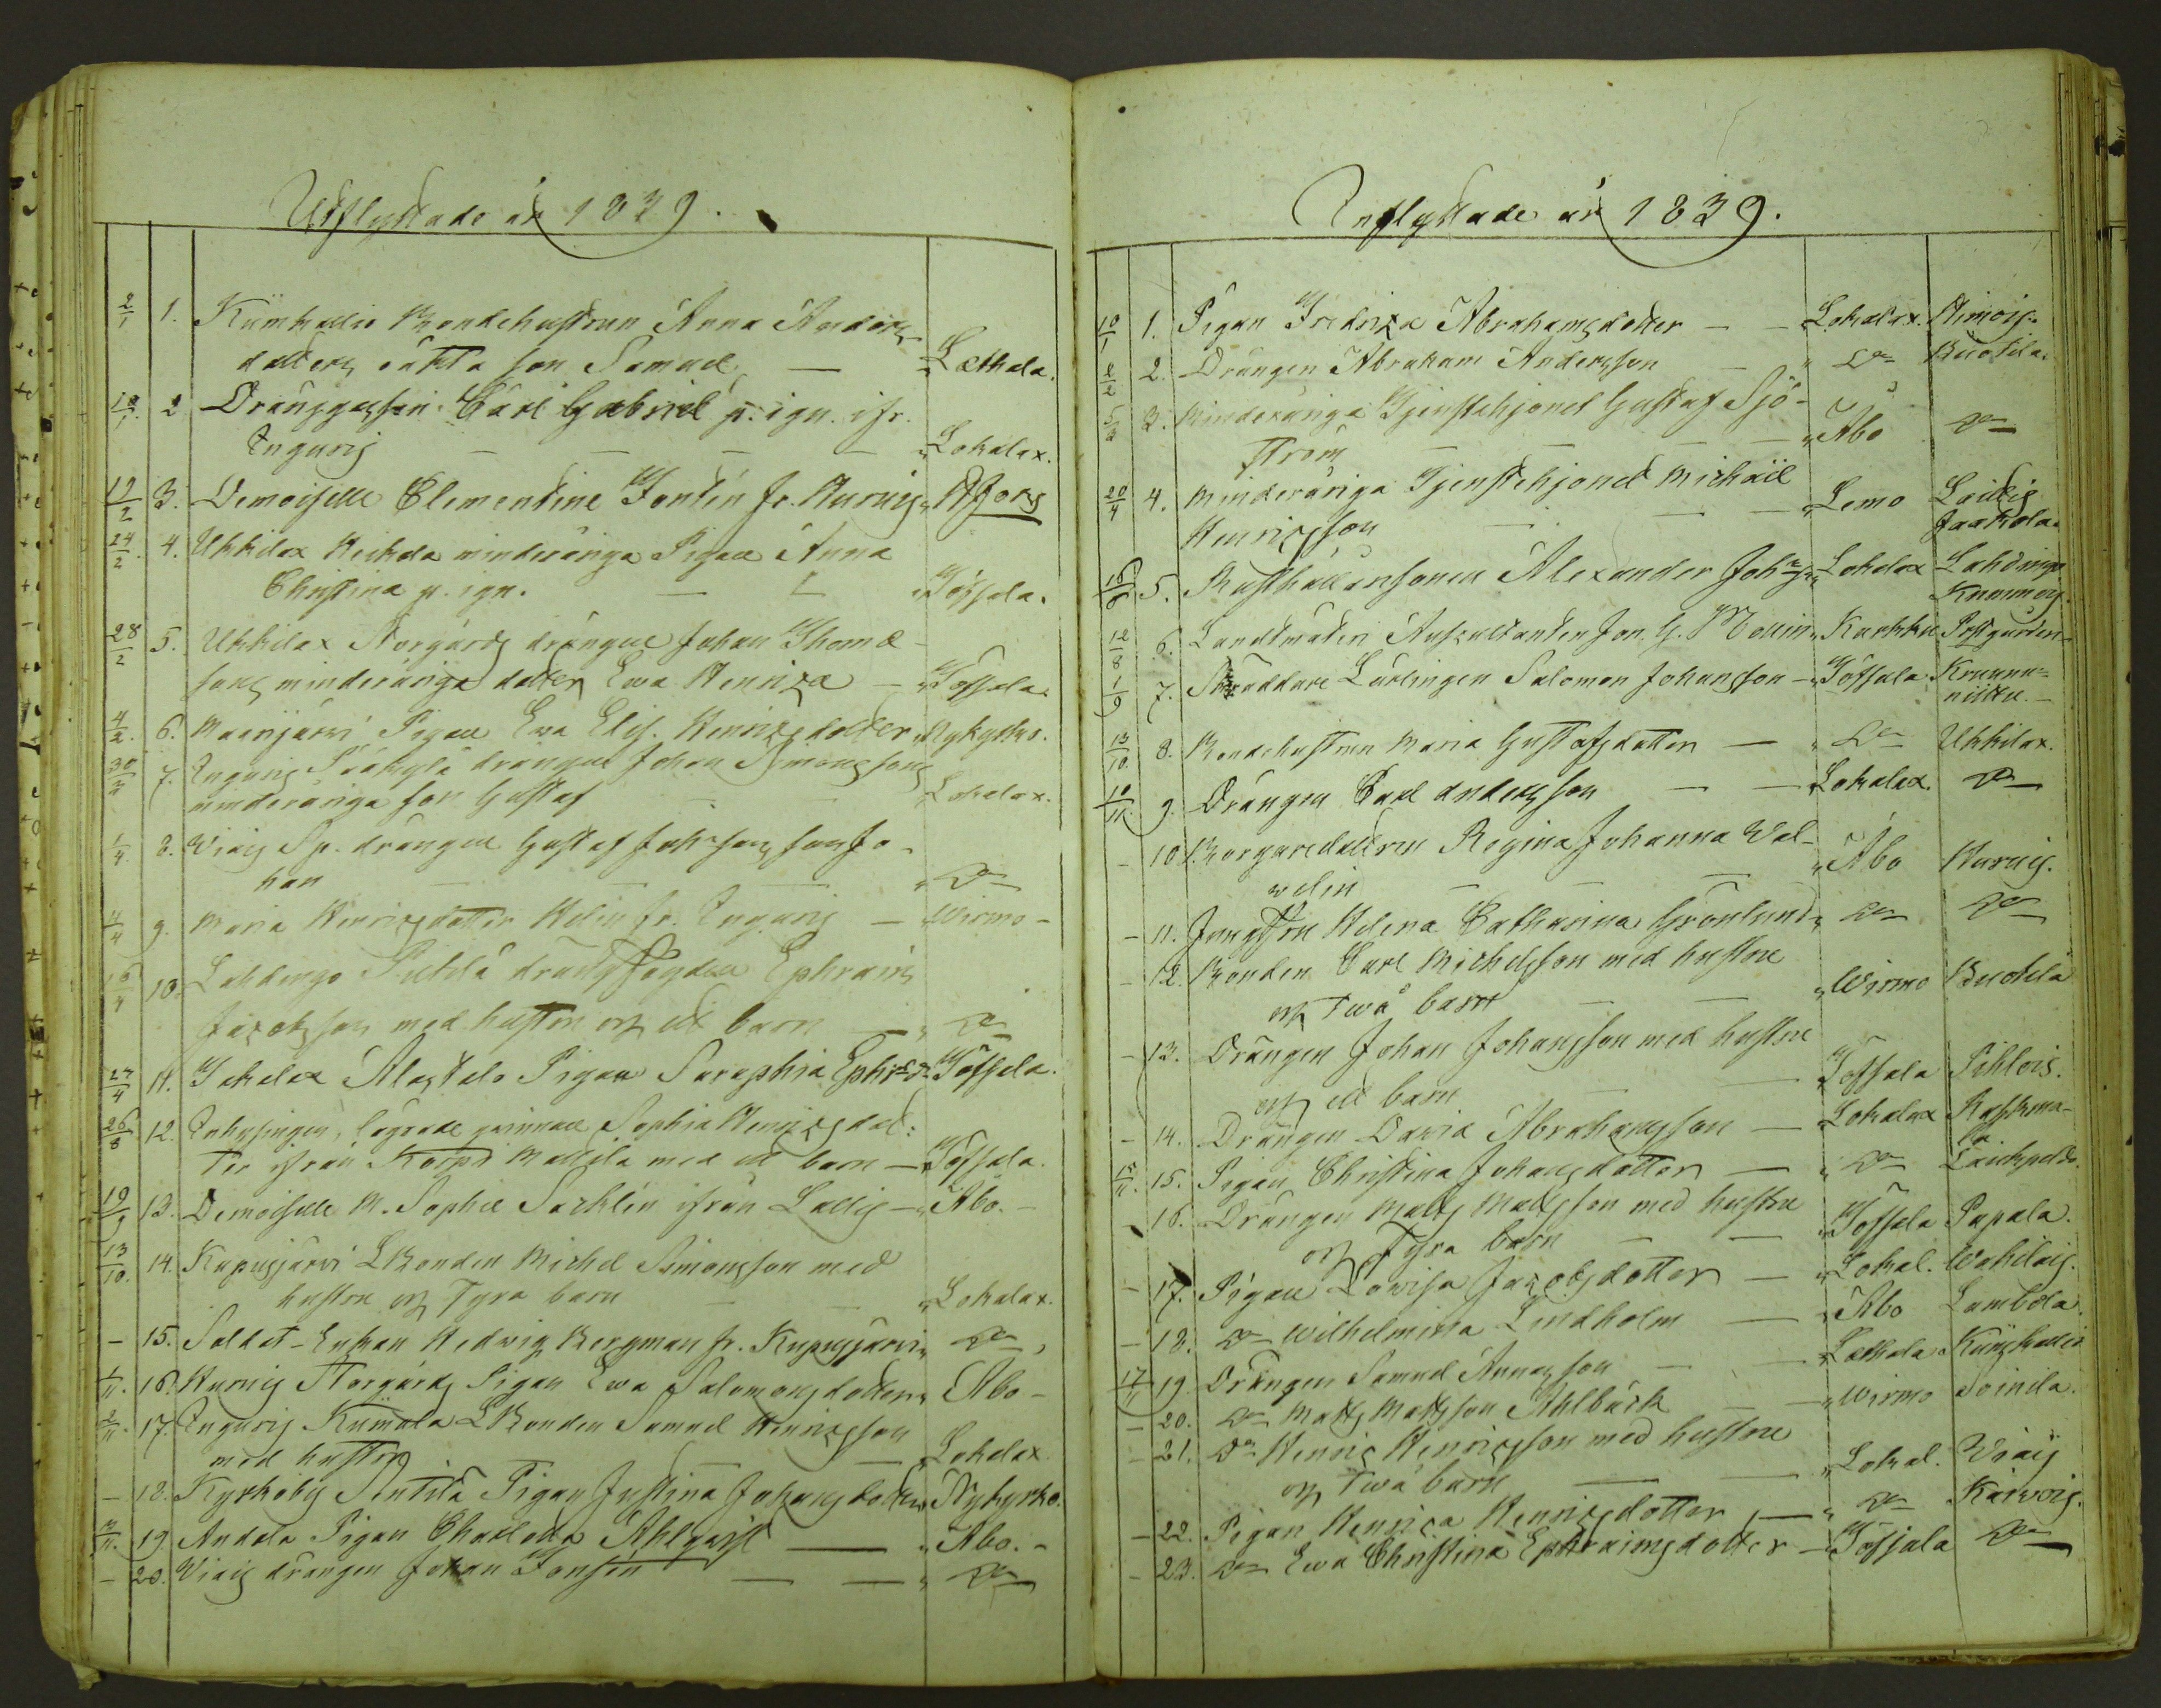 Utflyttade år 1839.
2/1 1. Kümhallio Bondehustrun Anna Anders
dotters oäkta son Samuel — Lethala.
10/1 2 Drängssonen Carl Gabriel p. ign. ifr.
Ingeris — — — — Lokalax.
19/2 3. Demoiselle Clementine Tontin fr. Hurnis
24/2 4. Ukkilax Heikola minderåriga Pigan Anna
Christina p. ign. — — Töfsala.
28/2 5. Ukkilax Storgårds drängen Johan Thomæ
sons minderåriga dotter Ewa Henrica — Töfsala.
4/2 6. Pigan Ewa Elis. Henricsdotter Nykyrko.
7. Ingeris drängen Johan Simonssons
minderåriga son Gustaf — — Lokalax.
1/4 8. Wiais Sp. drängen Gustaf Johssons son Jo-
han — — — Do
4/4 9. Maria Henricsdotter Helin fr. Ingeris — Wirmo —
16/4 10. Lahdinga Pietilä Ephraim
Jacobsson med hustru och ett barn — Do
24/4 11. Pigan Seraphia Ephrsdr Töfsala.
26/8 12. Inhysingen, lägrade qvinnan Sophia Henricsdot-
ter ifrån Korpi Mattila med ett barn — Töfsala.
19/9 13. Demoiselle M. Sophie Sacklén ifrån Lallis — Åbo. —
13/10. 14. Kapusjärvi LBonden Michel Simonsson med
hustru och fyra barn — — Lokalax.
— 15. Soldat-Enkan Hedwig Bergman fr. Kapusjärvi Do
1/11. 16. Hurnis Storgårds Pigan Ewa Salomonsdotter Åbo —
2/11. 17. Ingeris LBonden Samuel Henricsson
med hustru — — Lokalax
— 18. Kyrkoby Anttila Pigan Justina Johansdotter Nykyrko.
19. Andela Pigan Charlotta Ahlqvist — Åbo. —
— 20. Wiais drängen Johan Jonsén — — Do
Inflyttade år 1839.
10/1 1. Pigan Fredrica Abrahamsdotter — — Lokalax. Aimois.
2/2 2. Drängen Abraham Andersson — Do Kuotila.
3. Minderåriga Tjenstehjonet Gustaf Sjö-
ström — — — Åbo Do
20/4 4. Minderåriga Tjenstehjonet Michaël
Henricsson — — — Lemo Laidis
Jaakola.
5. Rusthållarsonen Alexander Johansson Lokalax Lahdinga
12/8 6. Landtmäteri Auskultanten Joh. G. Mollin Karkku Postgården
1/9 7. Skräddare Lärlingen Salomon Johansson — Töfsala
13/10. 8. Bondehustrun Maria Gustafsdotter — Do Ukkilax.
10/11. 9. Drängen Carl Andersson — — Lokalax. Do
— 10. Borgaredottren Regina Johanna Wal-
welin — — Åbo Hurnis.
— 11. Jungfrun Helena Catharina Grönlund Do Do
— 12. Bonden Carl Michelsson med hustru
och twå barn — — Wirmo Kuotila
— 13. Drängen Johan Johansson med hustru
och ett barn — — Töfsala Pihlois.
— 14. Drängen David Abrahamsson — Lokalax
15/11. 15. Pigan Christina Johansdotter — Do
— 16. Drängen Matts Mattsson med hustru
och fyra barn — — Töfsala Papala.
— 17. Pigan Lowisa Jacobsdotter — Lokal. Wahdais.
— 18. Do Wilhelmina Lindholm — Åbo Lambola.
17/11 19. Drängen Samuel Annasson — — Lethala Kümhallio
— 20. Do Matts Mattsson Ahlbäck — Wirmo Soinila.
— 21. Do Henric Henricsson med hustru
och twå barn — — Lokal. Wiais
— 22. Pigan Henrica Henricsdotter — Do Kaiwois.
— 23. Do Ewa Christina Ephraimsdotter — Töfsala Do